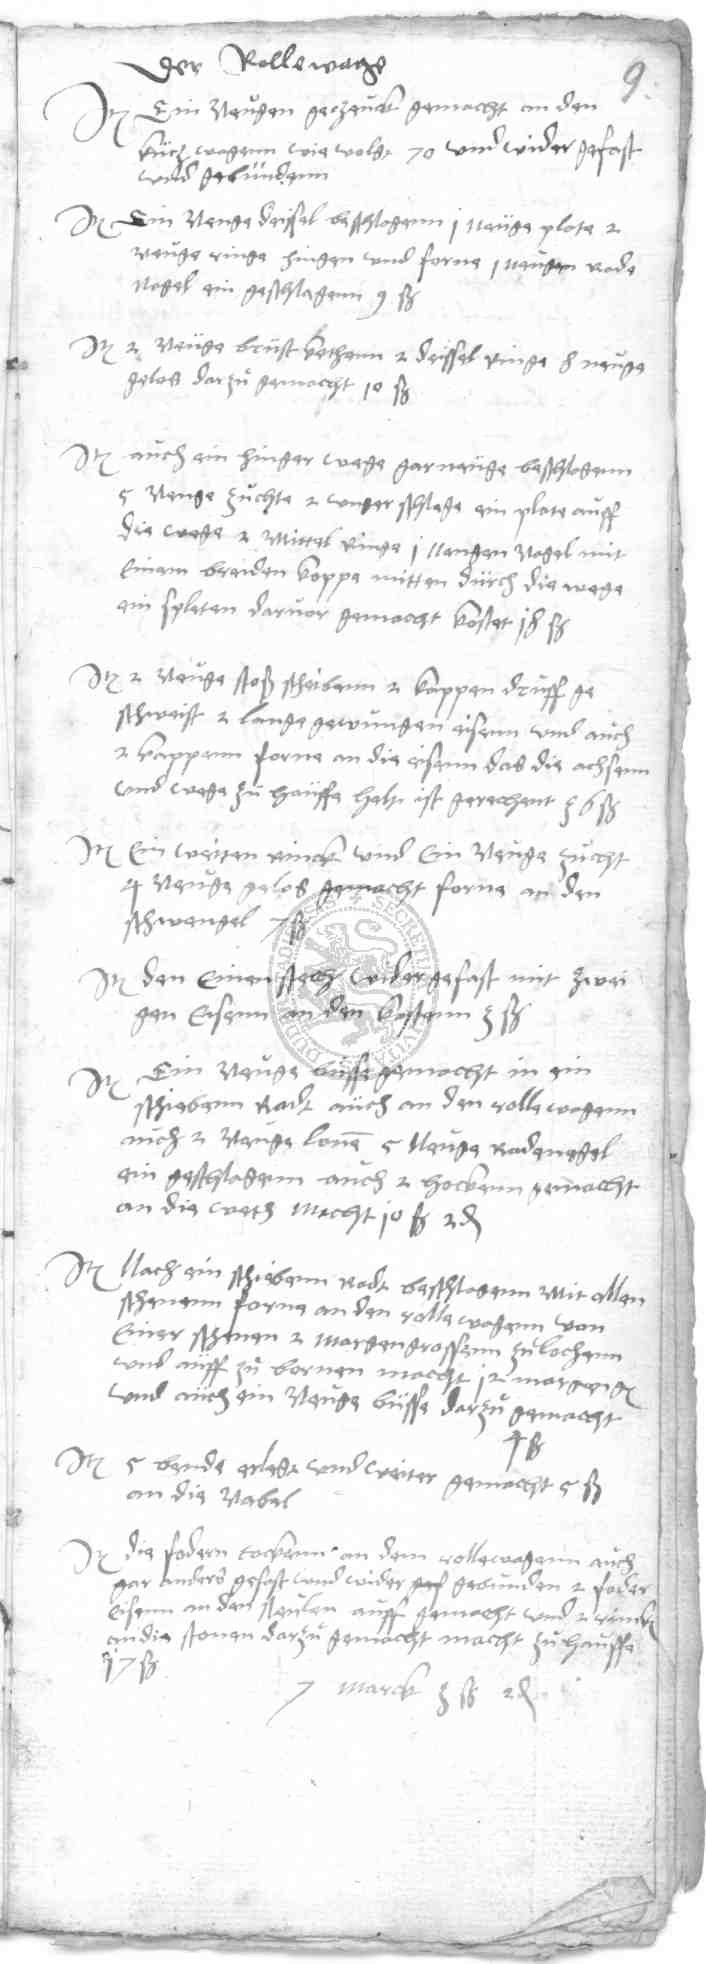 Der Rollewage
9.
Itz Ein Neugen gezeuck gemacht an den
kutz wagenn wie volgt 70 und wider gefast
und gebundenn
Itz Ein Neuge deissel beschlagenn 1 neuge plate 2
neuge ringe hingen und forne 1 neugen rade
nagel ein geschlagenn 9 ß
Itz 2 Neuge brust kethenn 2 deissel ringe 8 neuge
geles darzu gemacht 10 ß
Itz auch ein hinger wege gar neuge beschlagenn
5 Neuge zuchte 2 unger schlege ein plate auff
die wege 2 Mittel ringe 1 Neugen Nagel mit
Einem breiden koppe mitten durch die wege
ein spleten darvor gemacht kostet 18 ß
Itz 2 Neuge stoß scheibenn 2 kappen druff ge
schweist 2 lange gewungen eisenn und auch
2 kappenn forne an die eisenn das die achsenn
und wege zu hauffe helt ist gerechent 36 ß
Itz Ein weiten rinck und Ein Neuge zucht
4 Neuge geles gemacht forne an den
schwengel 7 ß
Itz den Einen wider gefast mit zwei
gen Eisenn an den kastenn 3 ß
Itz Ein Neuge busse gemacht in ein
schiebenn Radt auch an den rollewagenn
auch 2 Neuge lone 5 Neuge Radenegel
ein geschlagenn auch 2 hockenn gemacht
an die Macht 10 ß 2 d
Itz Nach ein schiebenn Radt beschlagenn Mit allen
schenenn forne an den rollewagenn von
Einer schenen 2 Margengrossenn zu lochenn
und auff zu bornen macht 12 margengr
und auch ein Neuge busse darzu gemacht
4 ß
Itz 5 bende erleget und weiter gemacht 5 ß
an die Nabel
Itz die fodern an dem rollewagenn auch
gar anders gefast und wider gebunden 2 foder
Eisenn an den steulen auff gemacht und 2 rincke
an die darzu gemacht macht zu hauffe
17 ß
7 Marck 3 ß 2 d